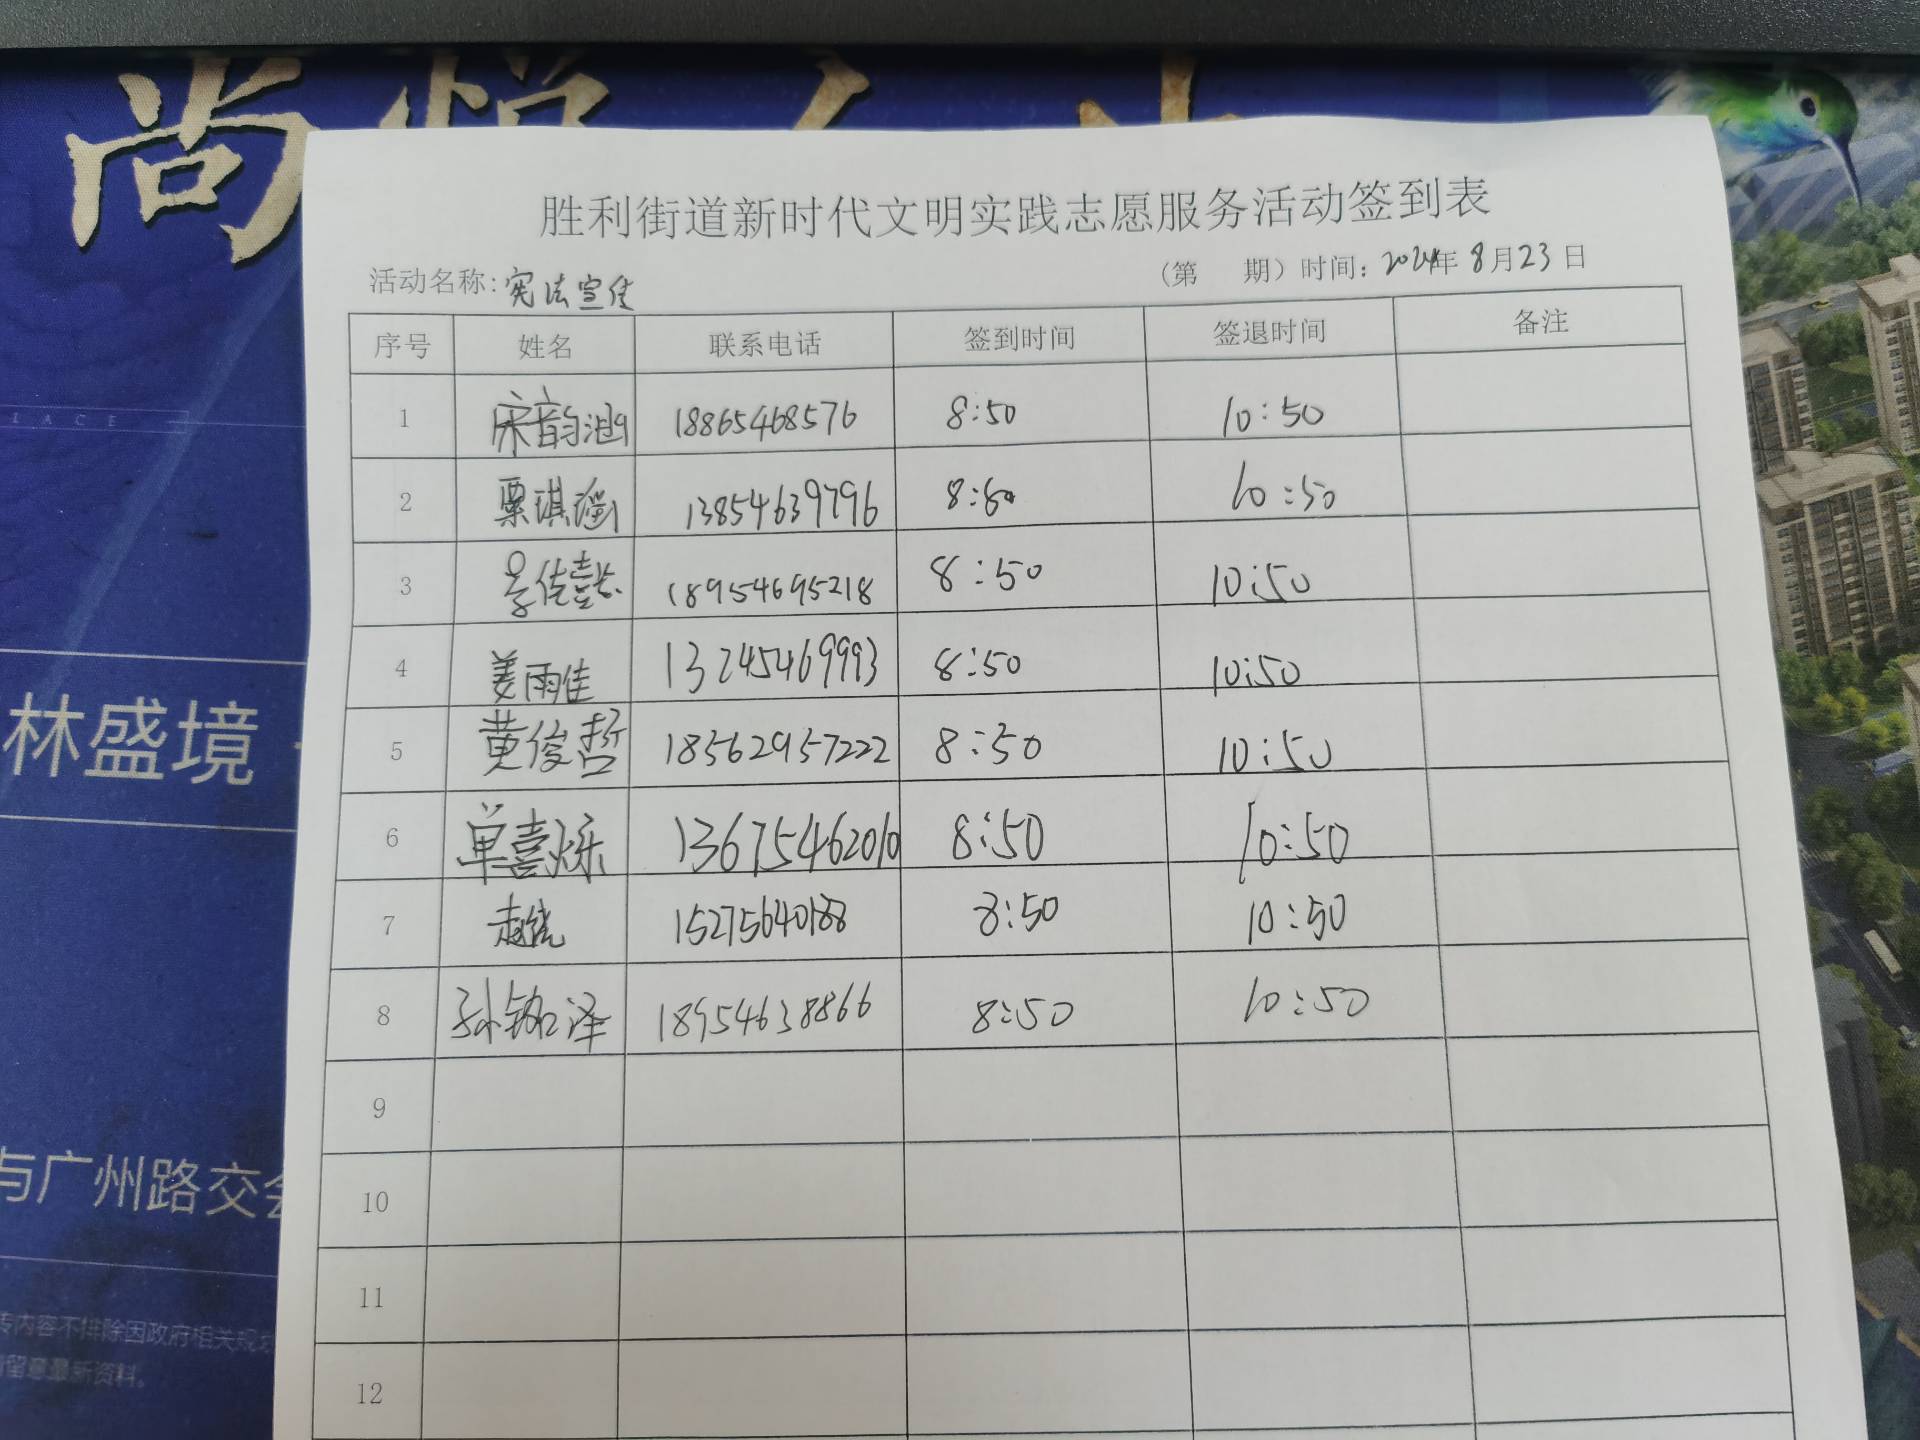 尚悦
PLACE
林盛境
与广州路交会
传内容不排除因政府相关规划
留意最新资料。
胜利街道新时代文明实践志愿服务活动签到表
活动名称:宪法宣传 (第 期) 时间: 2024年 8月23日
序号 姓名 联系电话 签到时间 签退时间 备注
1 宋韵涵 18865468576 8:50 10:50
2 栗琪瑶 13854639796 8:50 10:50
3 18954695218 8:50 10:50
4 姜雨佳 13245469993 8:50 10:50
5 黄俊哲 18562957222 8:50 10:50
6 单喜烁 13675462010 8:50 10:50
7 15275640188 8:50 10:50
8 孙铭泽 18954638866 8:50 10:50
9
10
11
12